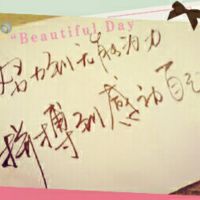 “Beautiful Day
努力到无能为力
拼搏到感动自己